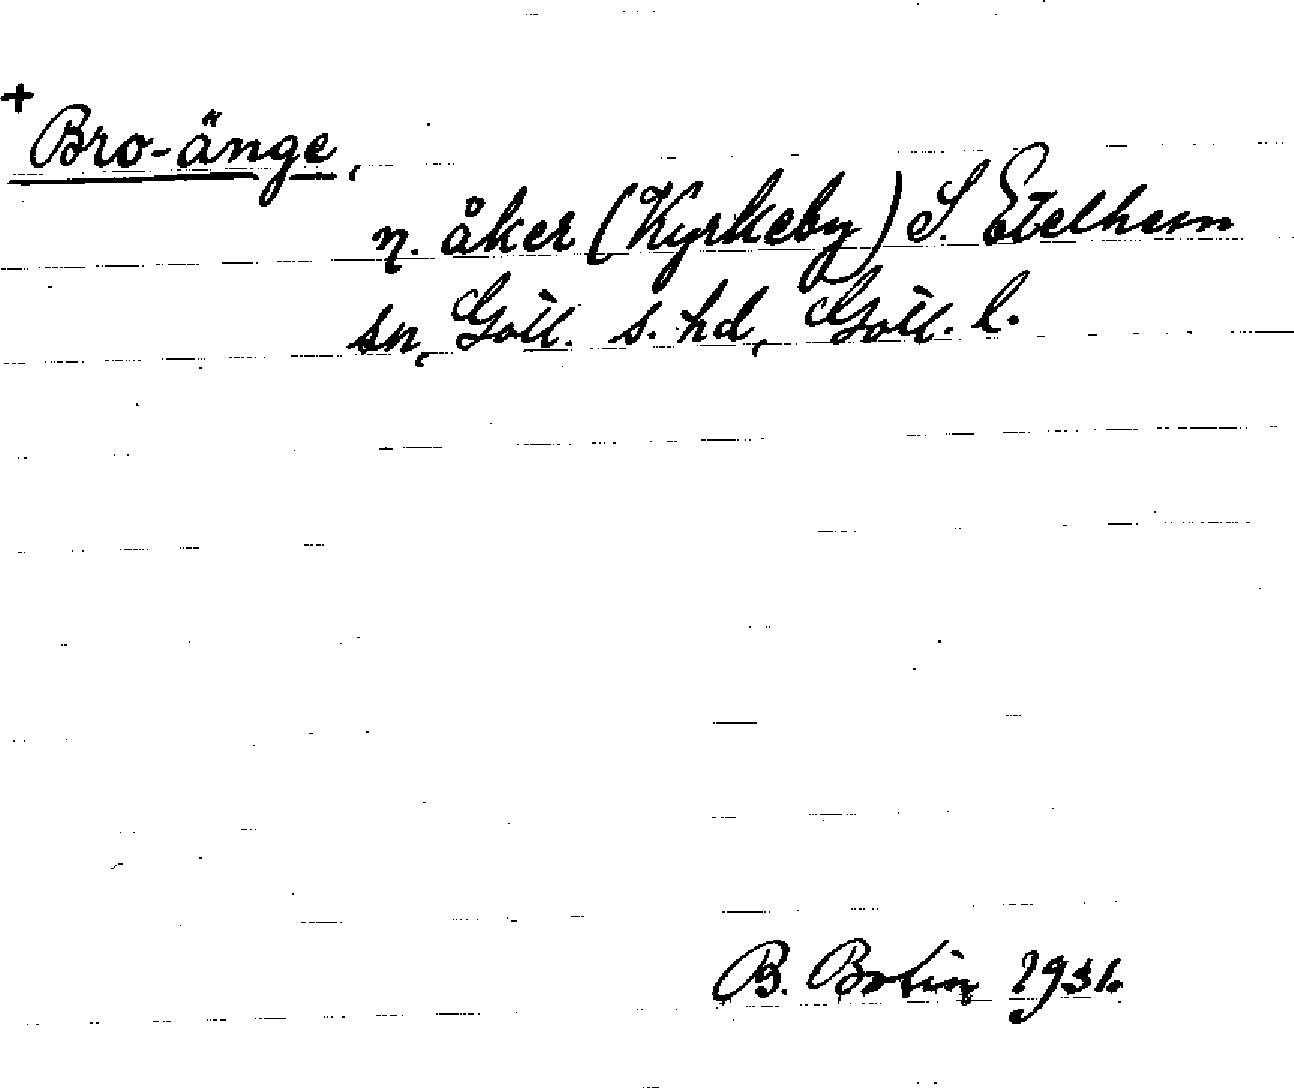 +
Bro-änge,
n. åker (Kyrkeby) S. Etelhem
sn, Gotl. s. hd, Gotl. l.
B. Bolin 1931.